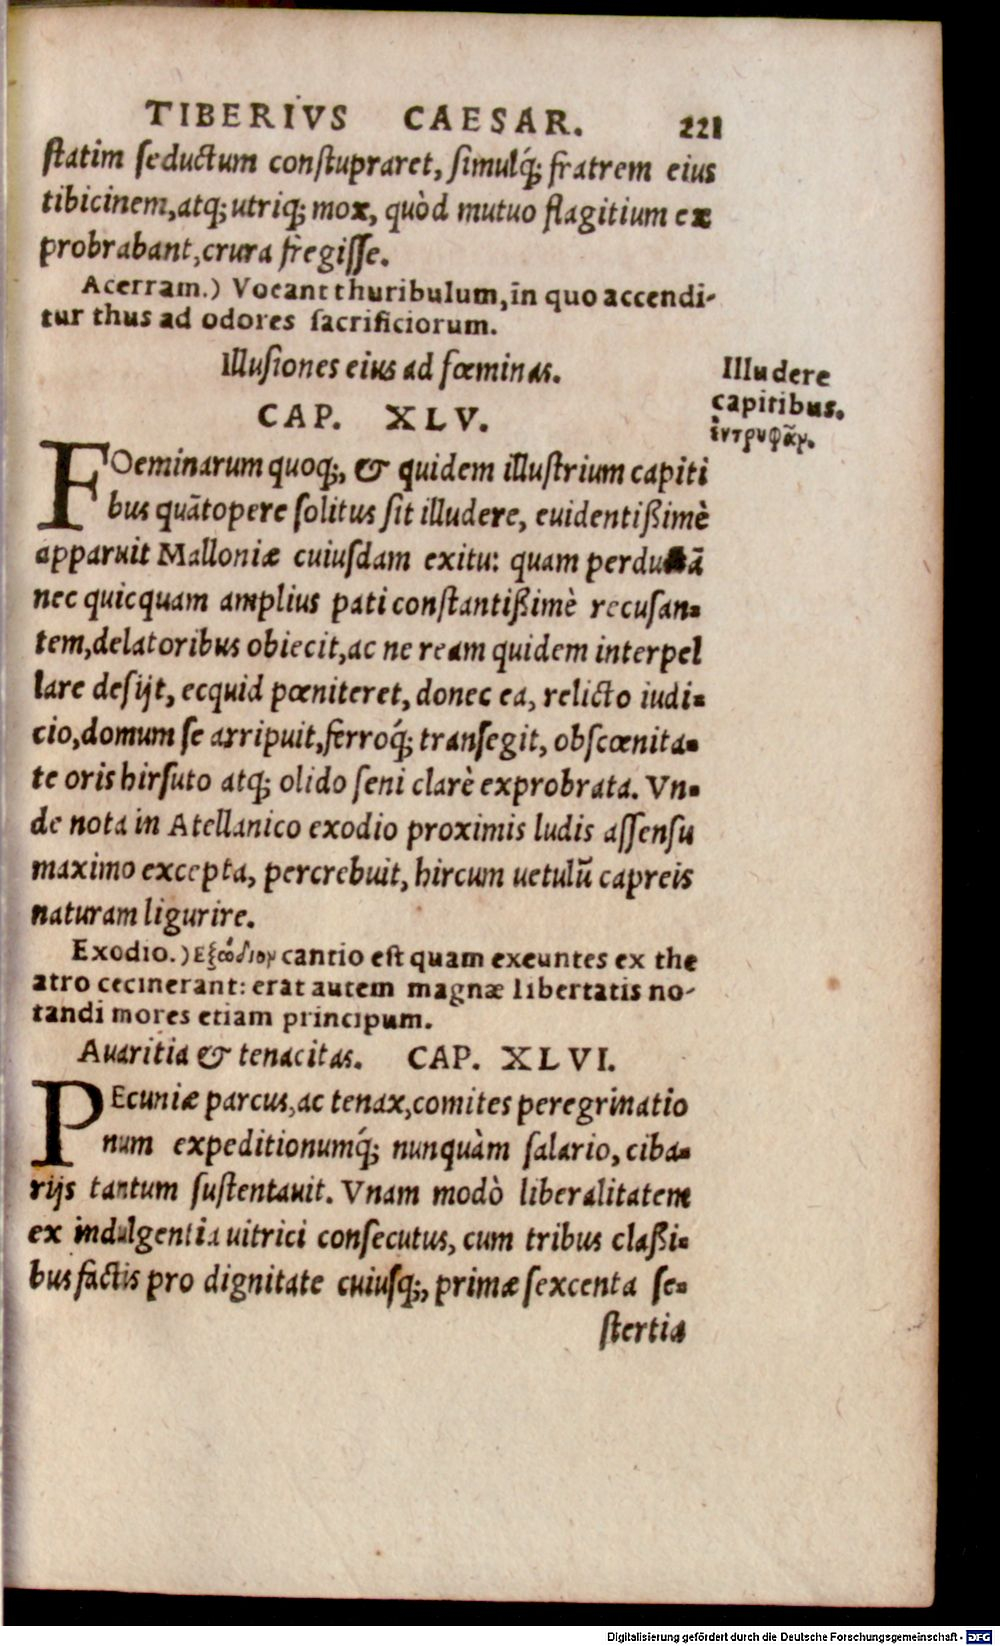 TIBERIVS CAESAR. 221
ſtatim ſeductum conſtupraret, ſimulq́; fratrem eius
tibicinem, atq; utriq; mox, quòd mutuo flagitium ex
probrabant, crura fregiſſe.
Acerram.) Vocant thuribulum, in quo accendi-
tur thus ad odores ſacrificiorum.
Illuſiones eius ad fœminas.
CAP. XLV.
Illudere
capitibus.
ἐντρυφᾶν.
FOeminarum quoq;, & quidem illuſtrium capiti
bus quātopere ſolitus ſit illudere, euidentißimè
apparuit Malloniæ cuiuſdam exitu: quam perductā
nec quicquam amplius pati conſtantißimè recuſan-
tem, delatoribus obiecit, ac ne ream quidem interpel
lare deſijt, ecquid pœniteret, donec ea, relicto iudi-
cio, domum ſe arripuit, ferroq́; tranſegit, obſcœnita-
te oris hirſuto atq; olido ſeni clarè exprobrata. Vn-
de nota in Atellanico exodio proximis ludis aſſenſu
maximo excepta, percrebuit, hircum uetulū capreis
naturam ligurire.
Exodio.) Εξώδιον cantio eſt quam exeuntes ex the
atro cecinerant: erat autem magnæ libertatis no-
tandi mores etiam principum.
Auaritia & tenacitas. CAP. XLVI.
PEcuniæ parcus, ac tenax, comites peregrinatio
num expeditionumq́; nunquàm ſalario, ciba-
rijs tantum ſuſtentauit. Vnam modò liberalitatem
ex indulgentia uitrici conſecutus, cum tribus claßi-
bus factis pro dignitate cuiuſq;, primæ ſexcenta ſe-
ſtertia
Digitalisierung gefördert durch die Deutsche Forschungsgemeinschaft - DFG